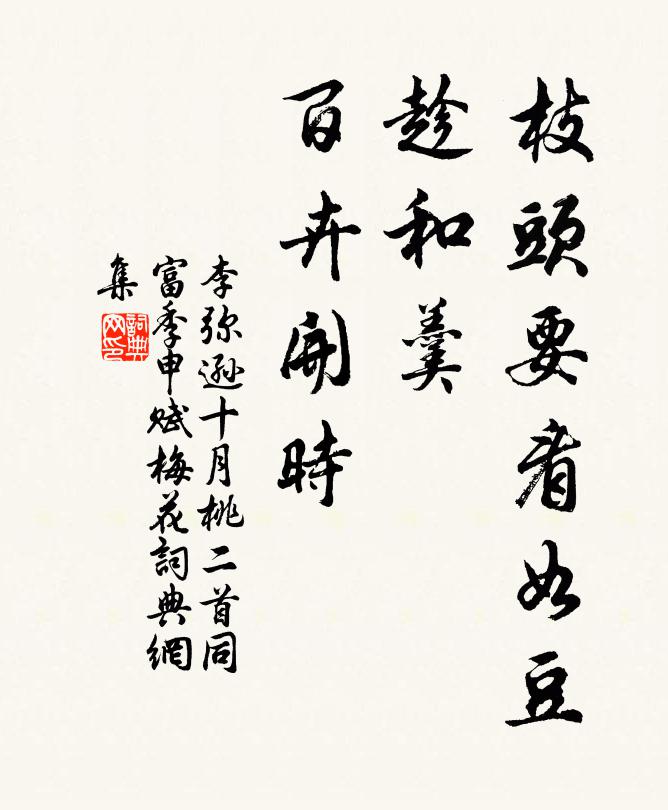 枝頭要看如豆
趁和羹
百卉開時
李弥遜十月桃二首同
富季申賦梅花詞典網
集
詞典
网印